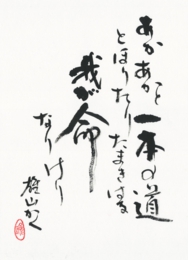 あかあかと一本の道
とほりたりたまきはる
我が命
なりけり
山かく